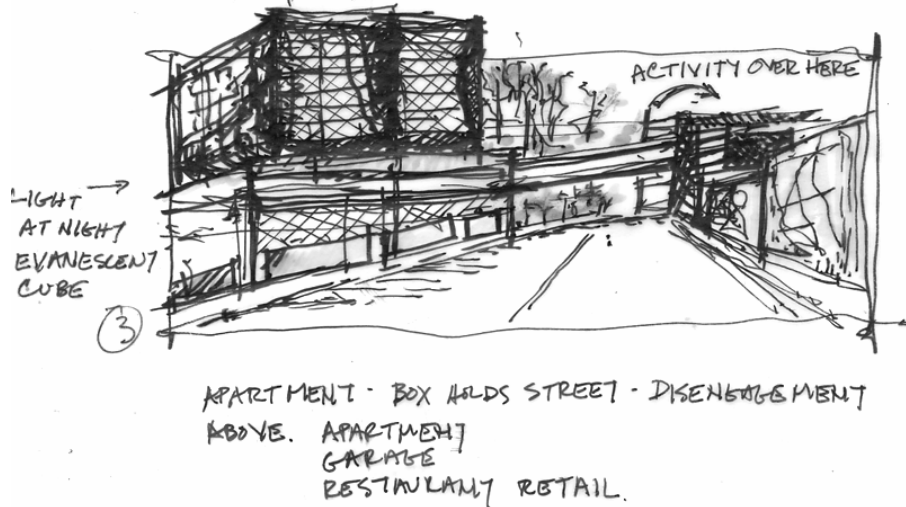 ACTIVITY OVER HERE
LIGHT
AT NIGHT
EVANESCENT
CUBE
3
APARTMENT - BOX HOLDS STREET - DISENGAGEMENT
ABOVE. APARTMENT
GARAGE
RESTAURANT RETAIL.